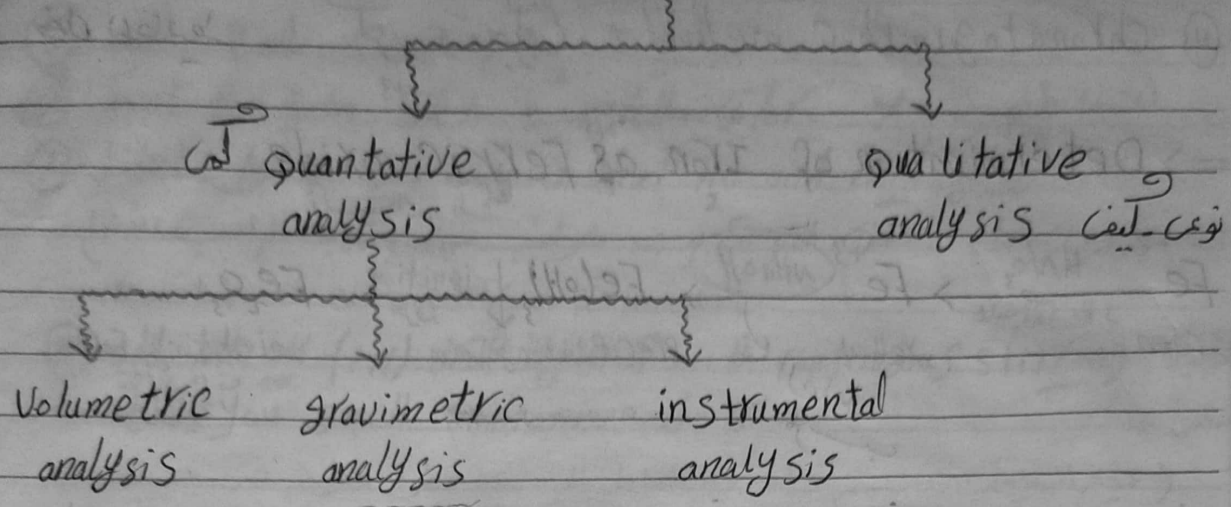 كمى quantative
analysis
qualitative
analysis نوعى - كيفى
volumetric
analysis
gravimetric
analysis
instrumental
analysis